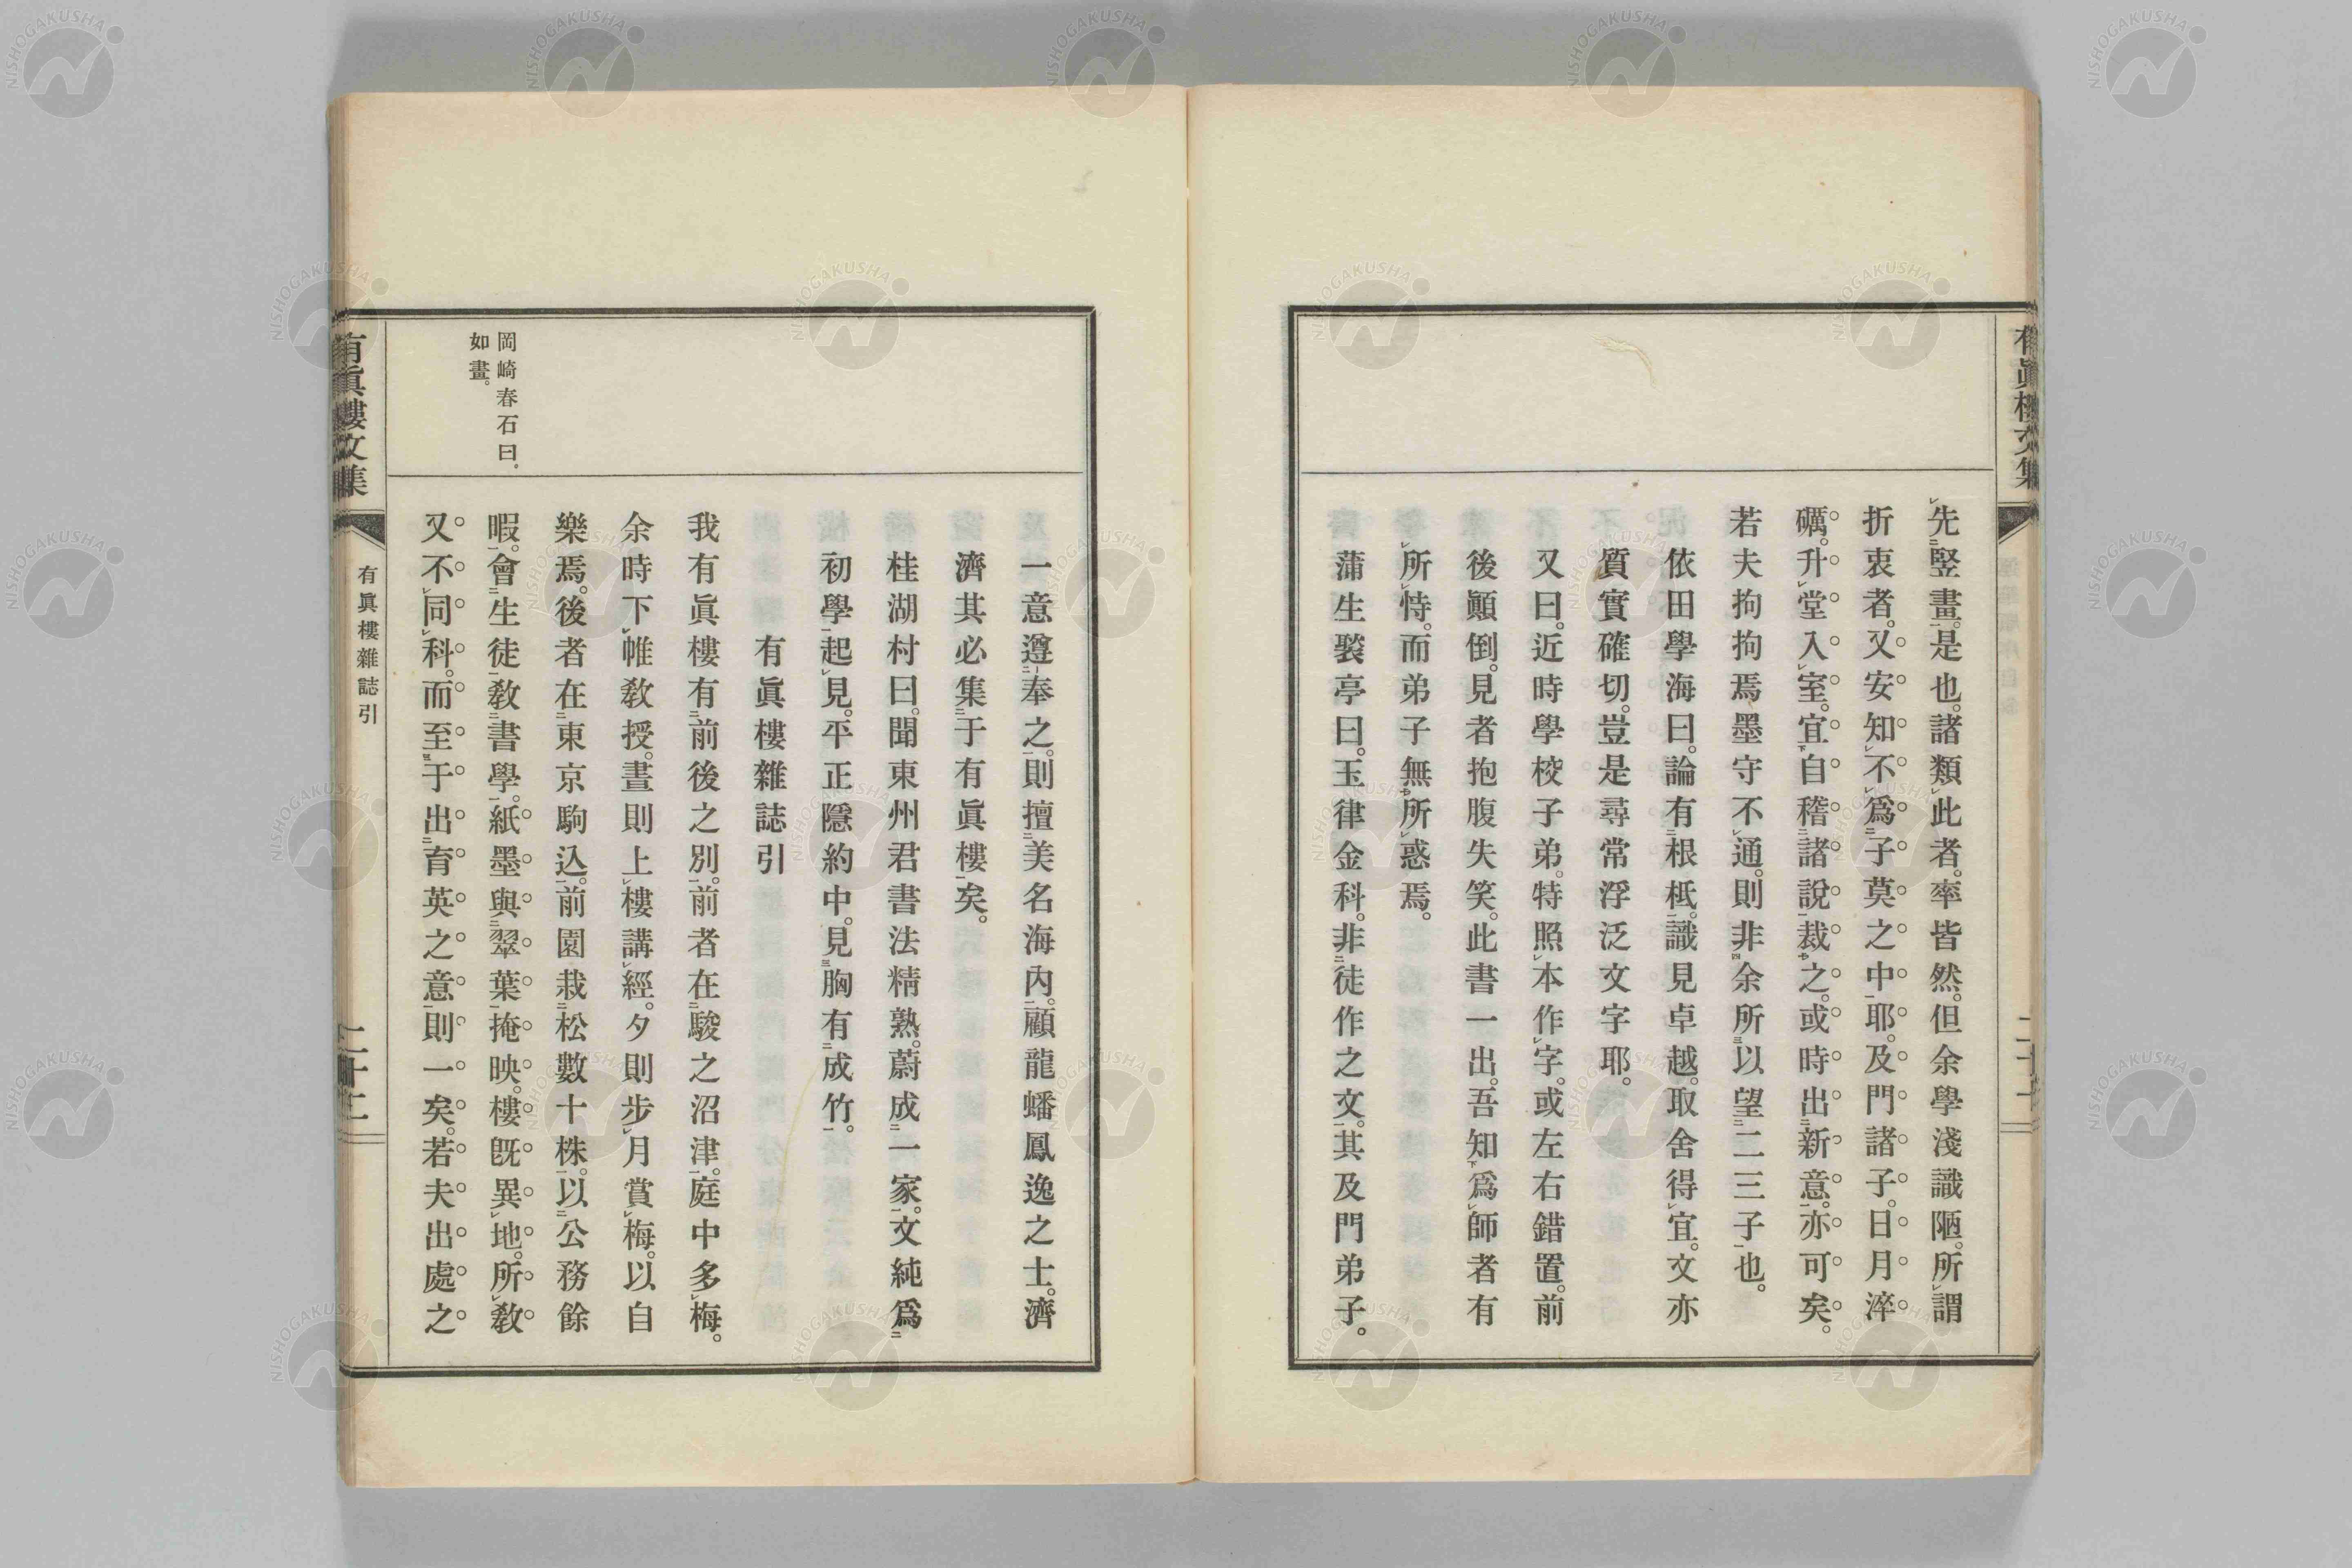 有眞樓文集
先竪畫是也。諸類此者。率皆然。但余學淺識陋。所謂
折衷者。又安知不爲子莫之中耶。及門諸子。日月淬
礪。升堂入室。宜自稽諸說裁之。或時出新意。亦可矣。
若夫拘拘焉墨守不通。則非余所以望二三子也。
依田學海曰。論有根柢。識見卓越。取舍得宜。文亦
質實確切。豈是尋常浮泛文字耶。
又曰。近時學校子弟。特照本作字。或左右錯置。前
後顚倒。見者抱腹失笑。此書一出。吾知爲師者有
所恃。而弟子無所惑焉。
蒲生褧亭曰。玉律金科。非徒作之文。其及門弟子。
一意遵奉之。則擅美名海內。顧龍蟠鳳逸之士。濟
濟其必集于有眞樓矣。
桂湖村曰。聞東州君書法精熟。蔚成一家。文純爲
初學起見。平正隱約中。見胸有成竹。
有眞樓雜誌引
我有眞樓有前後之別。前者在駿之沼津。庭中多梅。
余時下帷敎授。晝則上樓講經。夕則步月賞梅。以自
樂焉。後者在東京駒込。前園栽松數十株。以公務餘
暇。會生徒敎書學。紙墨與翠葉掩映。樓旣異地。所敎
又不同科。而至于出育英之意則一矣。若夫出處之
岡崎春石曰。
如畫。
有眞樓文集
有眞樓雜誌引
二十二
NISHOGAKUSHA